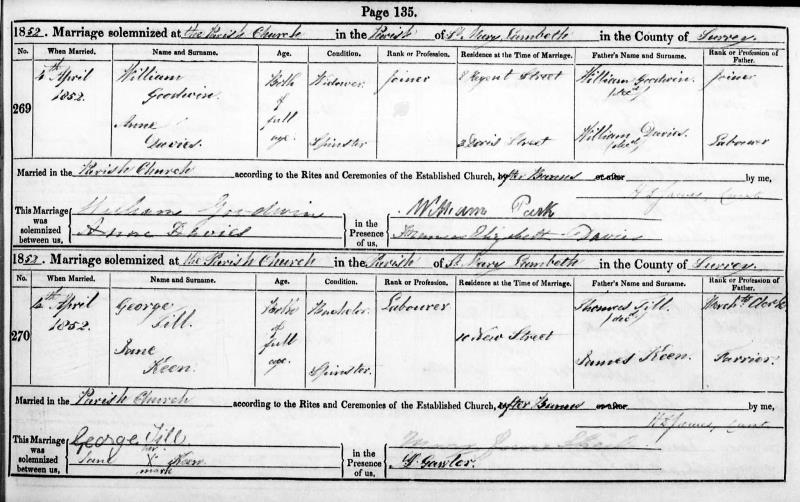 Page 135.
1852. Marriage solemnized at the Parish Church in the Parish of St. Mary Lambeth in the County of Surrey.
No. When Married. Name and Surname. Age. Condition. Rank or Profession. Residence at the Time of Marriage. Father's Name and Surname. Rank or Profession of Father.
269
April 1852.
William Goodwin.
Both of full age.
Widower
Joiner
8 Regent Street
William Goodwin. (decd)
Joiner
Anne Davies.
Spinster
Street
William Davies. (decd)
Labourer
Married in the Parish Church according to the Rites and Ceremonies of the Established Church, after Banns or after by me,
James, Curate
This Marriage was solemnized between us,
William Goodwin
Anne Davies
in the Presence of us,
William Park
Frances Elizabeth Davies
1852. Marriage solemnized at the Parish Church in the Parish of St. Mary Lambeth in the County of Surrey.
No. When Married. Name and Surname. Age. Condition. Rank or Profession. Residence at the Time of Marriage. Father's Name and Surname. Rank or Profession of Father.
270
April 1852.
George Till.
Both of full age.
Bachelor
Labourer
10 New Street
Thomas Till. (decd)
Clerk
Jane Keen.
Spinster.
James Keen.
Farrier.
Married in the Parish Church according to the Rites and Ceremonies of the Established Church, after Banns or after by me,
James, Curate
This Marriage was solemnized between us,
George Till
Jane X Keen
mark
in the Presence of us,
Jane
Gawler.